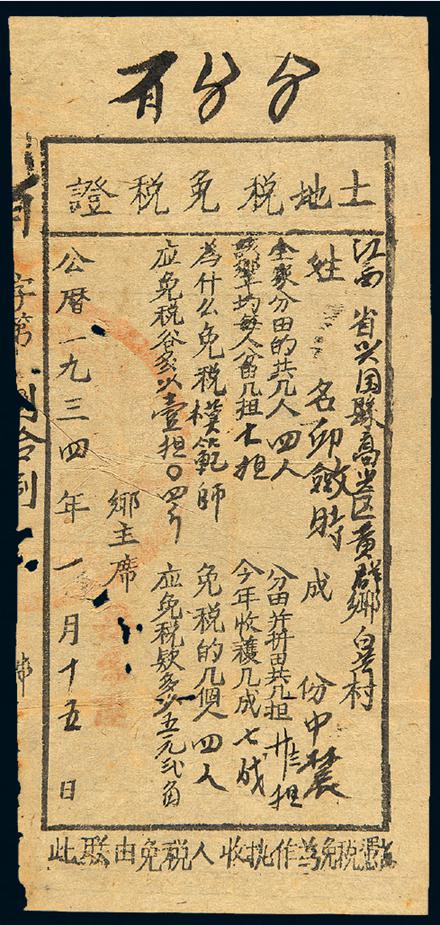 分分有
土地税免税證
江西省兴国縣高兴区黄群鄉村
姓名 成份中農
全家分田的共几人四人 分田并拚田共几担
鄉平均每人分田几担七担 今年收穫几成七成
為什么免税模範師 免税的几個人四人
应免税谷多少壹担〇四斤 应免税欵多少五元弍角
鄉主席
公曆一九三四年一月十五日
字第
此聯由免税人收执作為免税憑